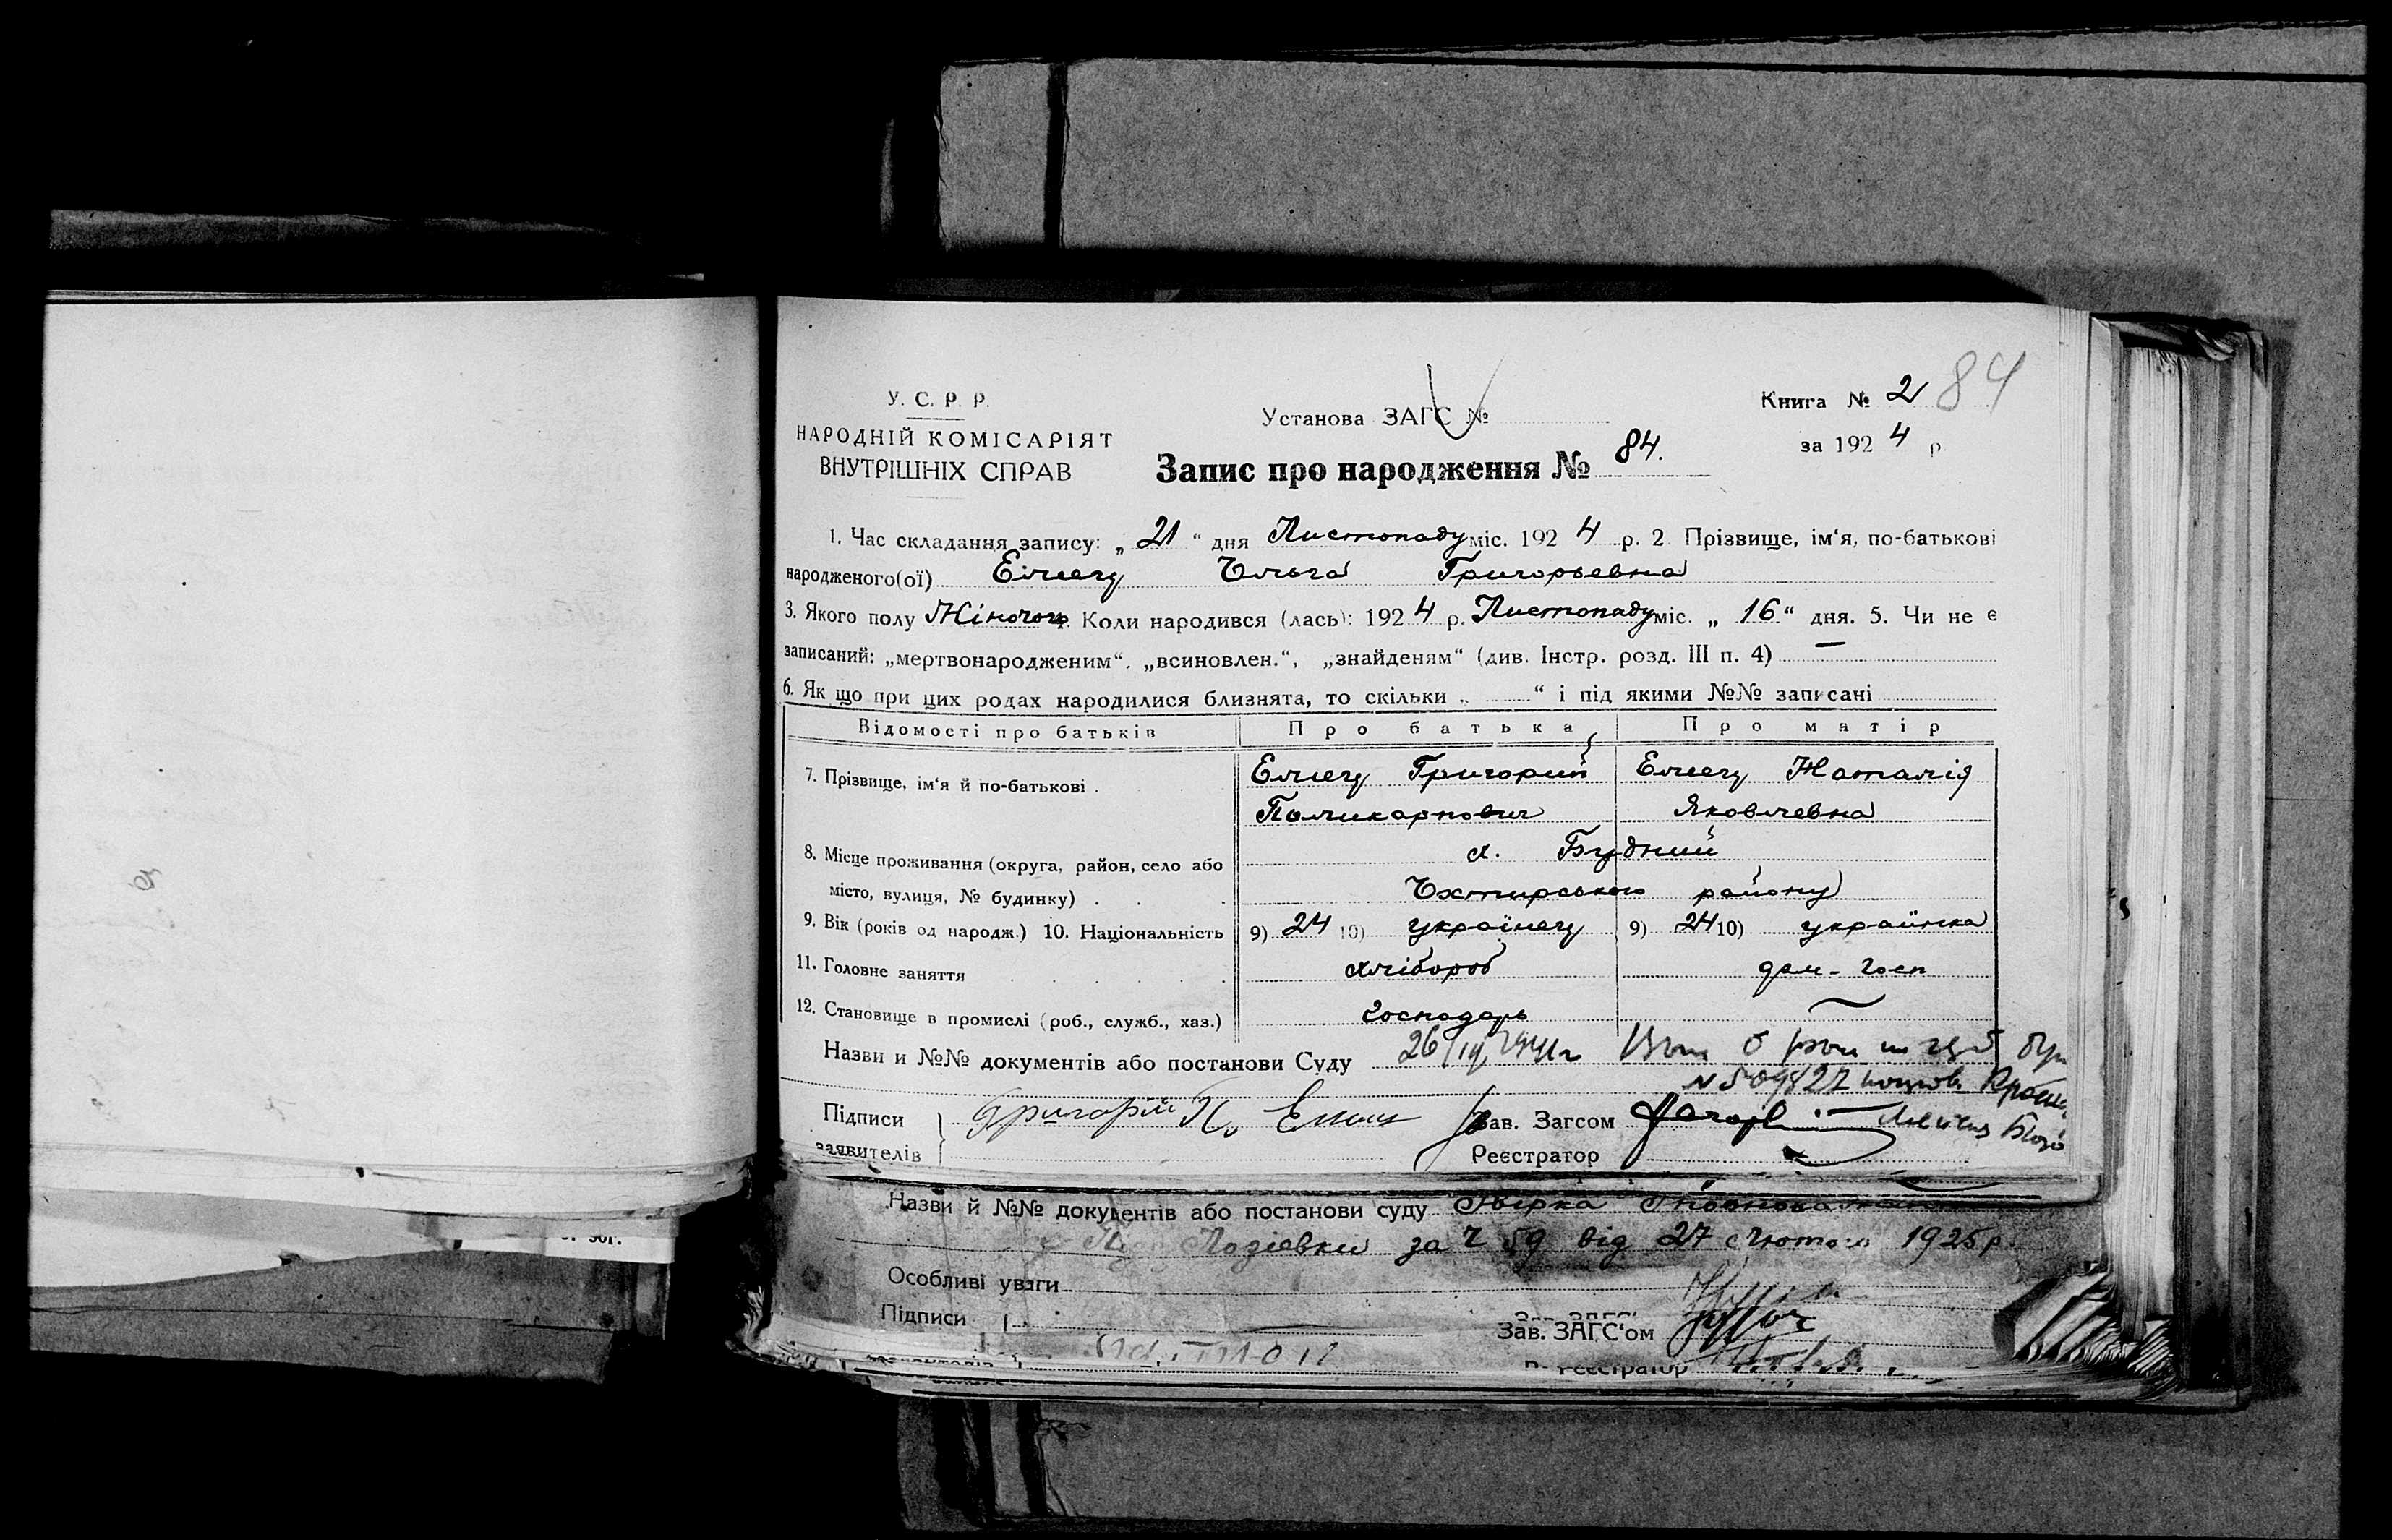 У. С. Р. Р.
НАРОДНІЙ КОМІСАРІЯТ
ВНУТРІШНІХ СПРАВ
Установа ЗАГС №
Книга № 2 84
за 192 4 р.
Запис про народження № 84.
1. Час складання запису: „ 21 “ дня Листопаду міс. 192 4 р. 2 Прізвище, ім‘я, по-батькові
народженого(ої) Ольга Григорьевна
3. Якого полу Жіночого 4. Коли народився (лась): 192 4 р. Листопаду міс. „ 16 “ дня. 5. Чи не є
записаний: „мертвонародженим“, „всиновлен.“, „знайденям“ (див. Інстр. розд. III п. 4) —
6. Як що при цих родах народилися близнята, то скільки „ “ і під якими №№ записані
Відомості про батьків Про батька Про матір
7. Прізвище, ім‘я й по-батькові . Григорий Наталія
Поликарпович Яковлевна
8. Місце проживання (округа, район, село або х. Будний
місто, вулиця, № будинку) . Охтирського району
9. Вік (років од народж.) 10. Національність 9) 24 10) українец 9) 24 10) українка
11. Головне заняття хлібороб дом-госп
12. Становище в промислі (роб., служб., хаз.) господарь —
Назви и №№ документів або постанови Суду 26
Підписи Григорій П.
заявителів
Зав. Загсом
Реєстратор
Назви й №№ документів або постанови суду
за Ч 59 від 27 Лютого 1925 р.
Особливі уваги
Підписи
Зав. ЗАГС‘ом
Реєстратор